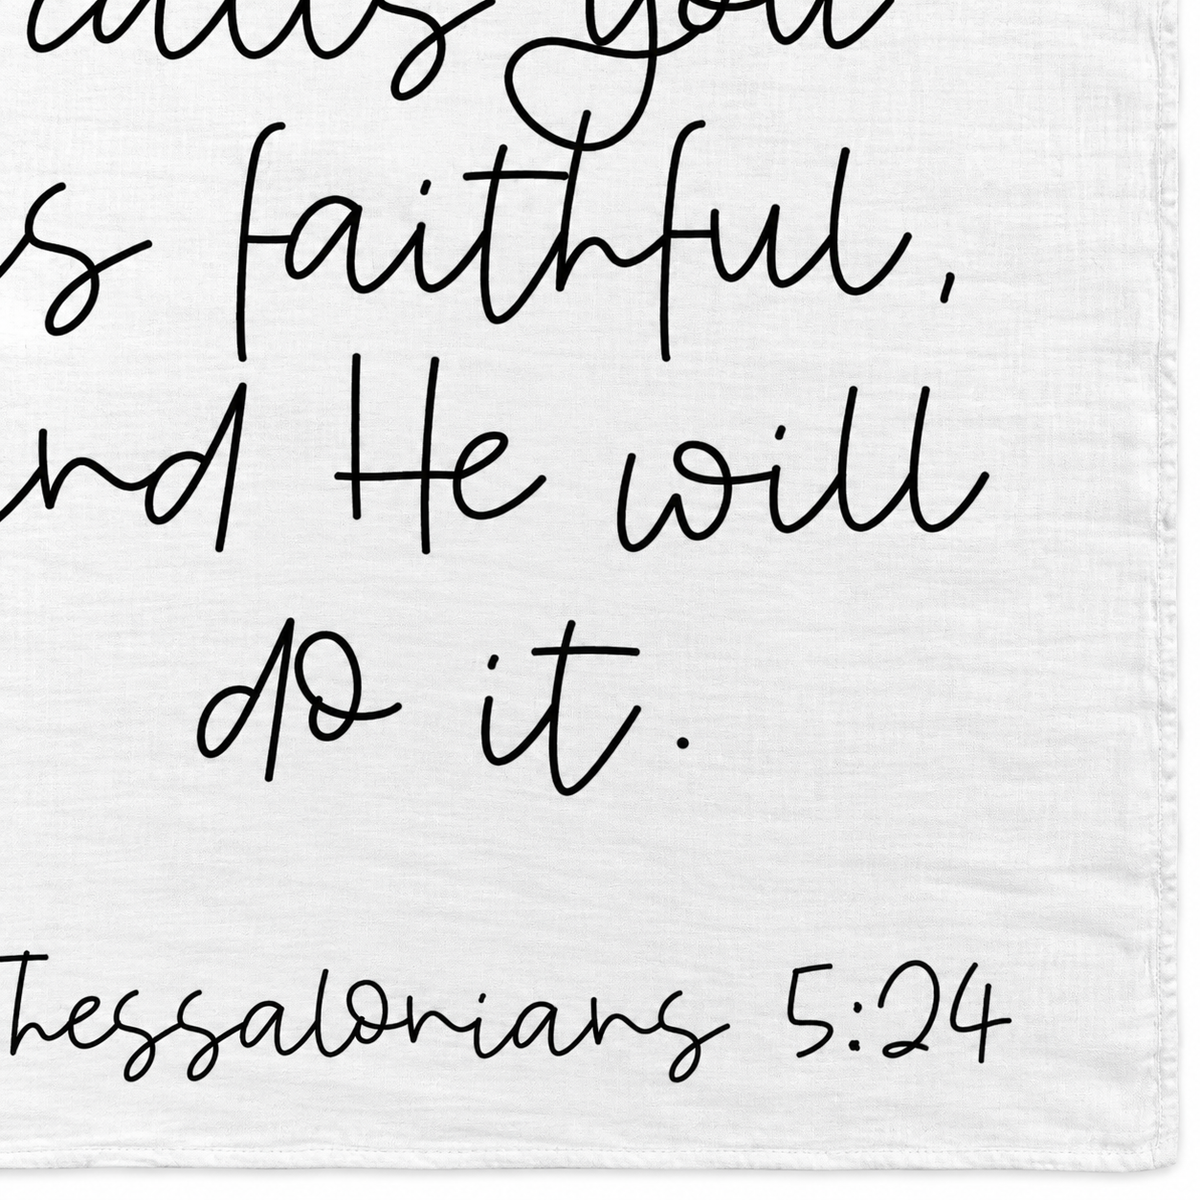 calls you
is faithful,
and He will
do it.
Thessalonians 5:24